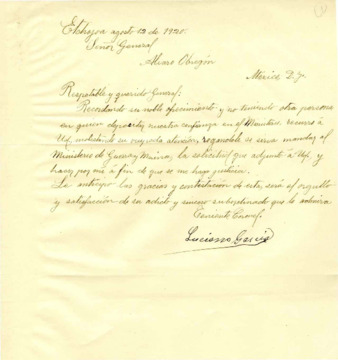 Etchojoa agosto 12 de 1920.
Señor General
Alvaro Obregón
México D.F.
Respetable y querido General:
Recordando su noble ofrecimiento y no teniendo otra persona
en quien depositar nuestra confianza en el Ministerio, recurro á
Ud. molestando su ocupada atención, rogandole se sirva mandar, al
Ministerio de Guerra y Marina, la solicitud que adjunto á Ud. y
hacer, por mí á fin de que se me haga justicia.
Le anticipo las gracias y contestación de esta, será el orgullo
y satisfacción de su adicto y sincero subordinado que lo admira
Teniente Coronel.
Luciano García